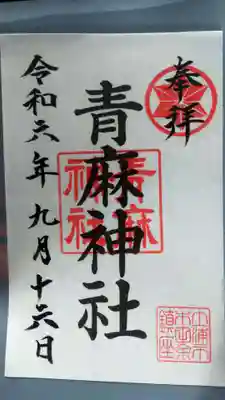 奉拝
青麻神社
青麻
神社
令和六年九月十六日
鎮座